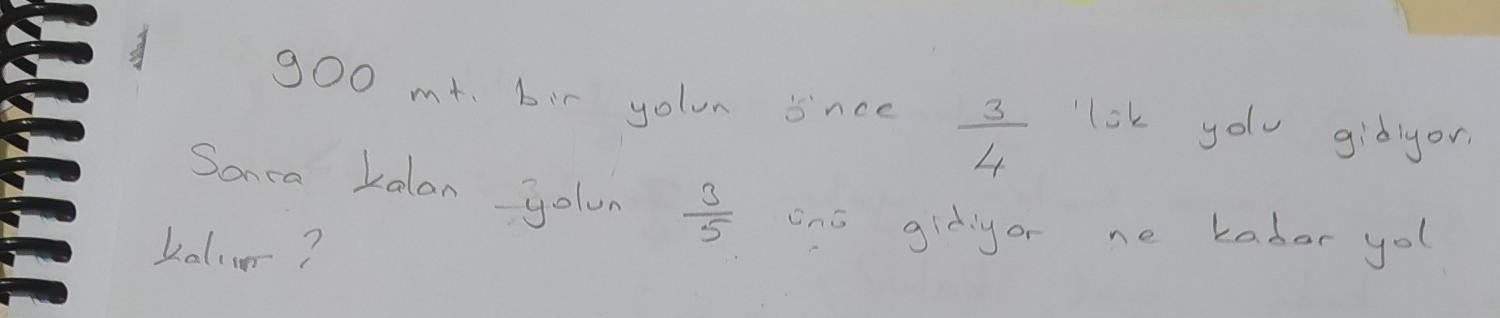 900 mt. bir yolun önce 3/4 'lük yolu gidiyor.
Sonra kalan yolun 3/5 ünü gidiyor ne kadar yol
kalır?